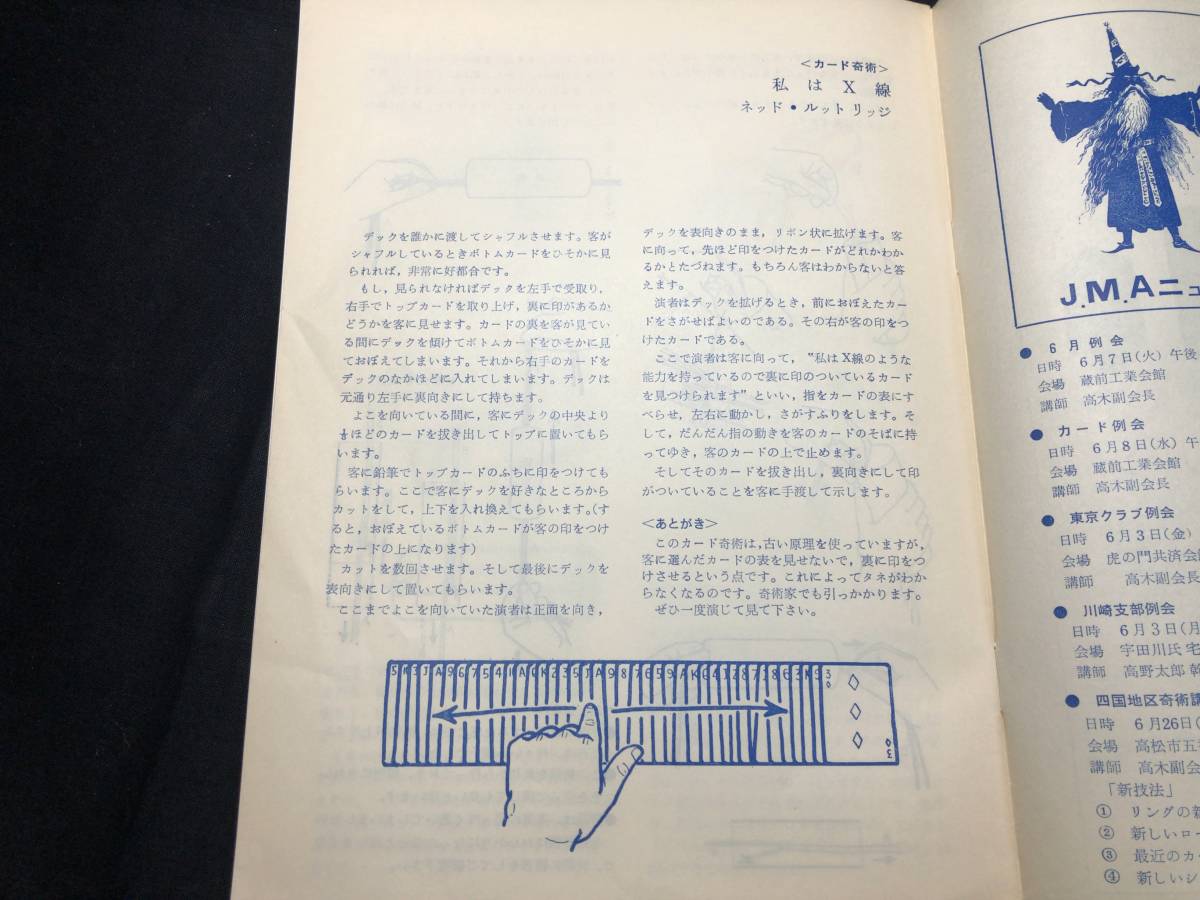 <カード奇術>
私はX線
ネッド・ルットリッジ
デックを誰かに渡してシャフルさせます。客が
シャフルしているときボトムカードをひそかに見
られれば，非常に好都合です。
もし，見られなければデックを左手で受取り，
右手でトップカードを取り上げ，裏に印があるか
どうかを客に見せます。カードの裏を客が見てい
る間にデックを傾けてボトムカードをひそかに見
ておぼえてしまいます。それから右手のカードを
デックのなかほどに入れてしまいます。デックは
元通り左手に裏向きにして持ちます。
よこを向いている間に，客にデックの中央より
⅓ほどのカードを抜き出してトップに置いてもら
います。
客に鉛筆でトップカードのふちに印をつけても
らいます。ここで客にデックを好きなところから
カットをして，上下を入れ換えてもらいます。(す
ると，おぼえているボトムカードが客の印をつけ
たカードの上になります)
カットを数回させます。そして最後にデックを
表向きにして置いてもらいます。
ここまでよこを向いていた演者は正面を向き，
デックを表向きのまま，リボン状に拡げます。客
に向って，先ほど印をつけたカードがどれかわか
るかとたづねます。もちろん客はわからないと答
えます。
演者はデックを拡げるとき，前におぼえたカー
ドをさがせばよいのである。その右が客の印をつ
けたカードである。
ここで演者は客に向って，"私はX線のような
能力を持っているので裏に印のついているカード
を見つけられます"といい，指をカードの表にす
べらせ，左右に動かし，さがすふりをします。そ
して，だんだん指の動きを客のカードのそばに持
ってゆき，客のカードの上で止めます。
そしてそのカードを抜き出し，裏向きにして印
がついていることを客に手渡して示します。
<あとがき>
このカード奇術は，古い原理を使っていますが，
客に選んだカードの表を見せないで，裏に印をつ
けさせるという点です。これによってタネがわか
らなくなるのです。奇術家でも引っかかります。
ぜひ一度演じて見て下さい。
J.M.Aニュ
● 6月例会
日時 6月7日(火)午後
会場 蔵前工業会館
講師 高木副会長
● カード例会
日時 6月8日(水)午
会場 蔵前工業会館
講師 高木副会長
● 東京クラブ例会
日時 6月3日(金)
会場 虎の門共済会
講師 高木副会長
● 川崎支部例会
日時 6月3日(月
会場 宇田川氏宅
講師 高野太郎幹
● 四国地区奇術講
日時 6月26日(
会場 高松市五
講師 高木副会
「新技法」
① リングの新
② 新しいロー
③ 最近のカ
④ 新しいシ